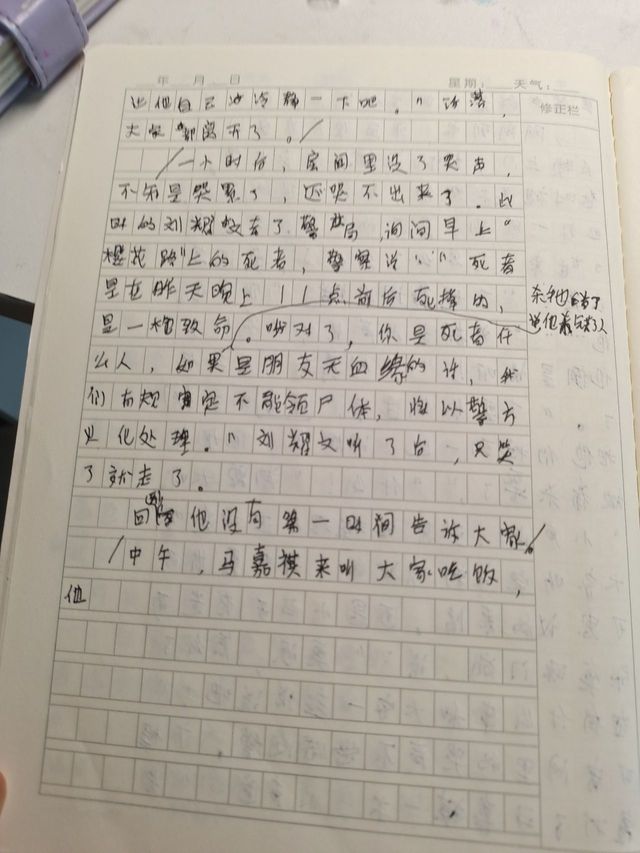 年 月 日 星期: 天气:
修正栏
让他自己冷静一下吧。" 话落,
大家都离开了。/
/一个时后,房间里没了哭声,
不知是哭累了,还哭不出来了。此
时的刘耀文去了警察局,询问早上"
樱花路"上的死者,警察说:" 死者
是在昨天晚上11点前后死掉的,
是一枪致命。哦对了,你是死者什
么人,如果是朋友无血缘的话,我
们有规定不能领尸体,将以警方
火化处理。" 刘耀文听了后,只笑
了就走了。
回 他没有第一时间告诉大家。/
/中午,马嘉祺来叫大家吃饭,
他